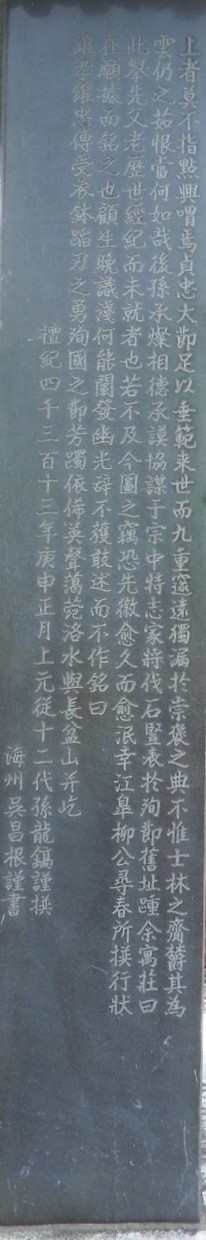 上者莫不指點興喟焉貞忠大節足以垂範来世而九重邃遠獨漏於崇褒之典不惟士林之齎鬱其為
雲仍之茹恨當何如哉後孫承燦相德承謨協謀于宗中特志家将伐石竪表於殉節舊址踵余寓莊曰
此擧先父老歷世經紀而未就者也若不及今圖之竊恐先徽愈久而愈泯幸江皐柳公尋春所撰行狀
在願據而銘之也顧生晩識淺何能闡發幽光辞不獲敢述而不作銘曰
維孝維忠傳受衣鉢蹈刃之勇殉國之節芳躅依俙英聲蕩菀洛水與長盆山并屹
檀紀四千三百十三年庚申正月上元從十二代孫龍鎬謹撰
海州吳昌根謹書